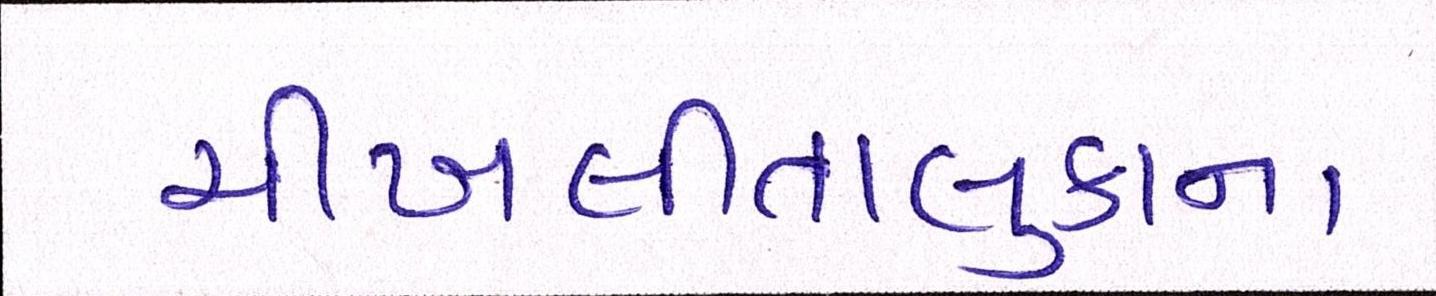 ચીખલીતાલુકાના